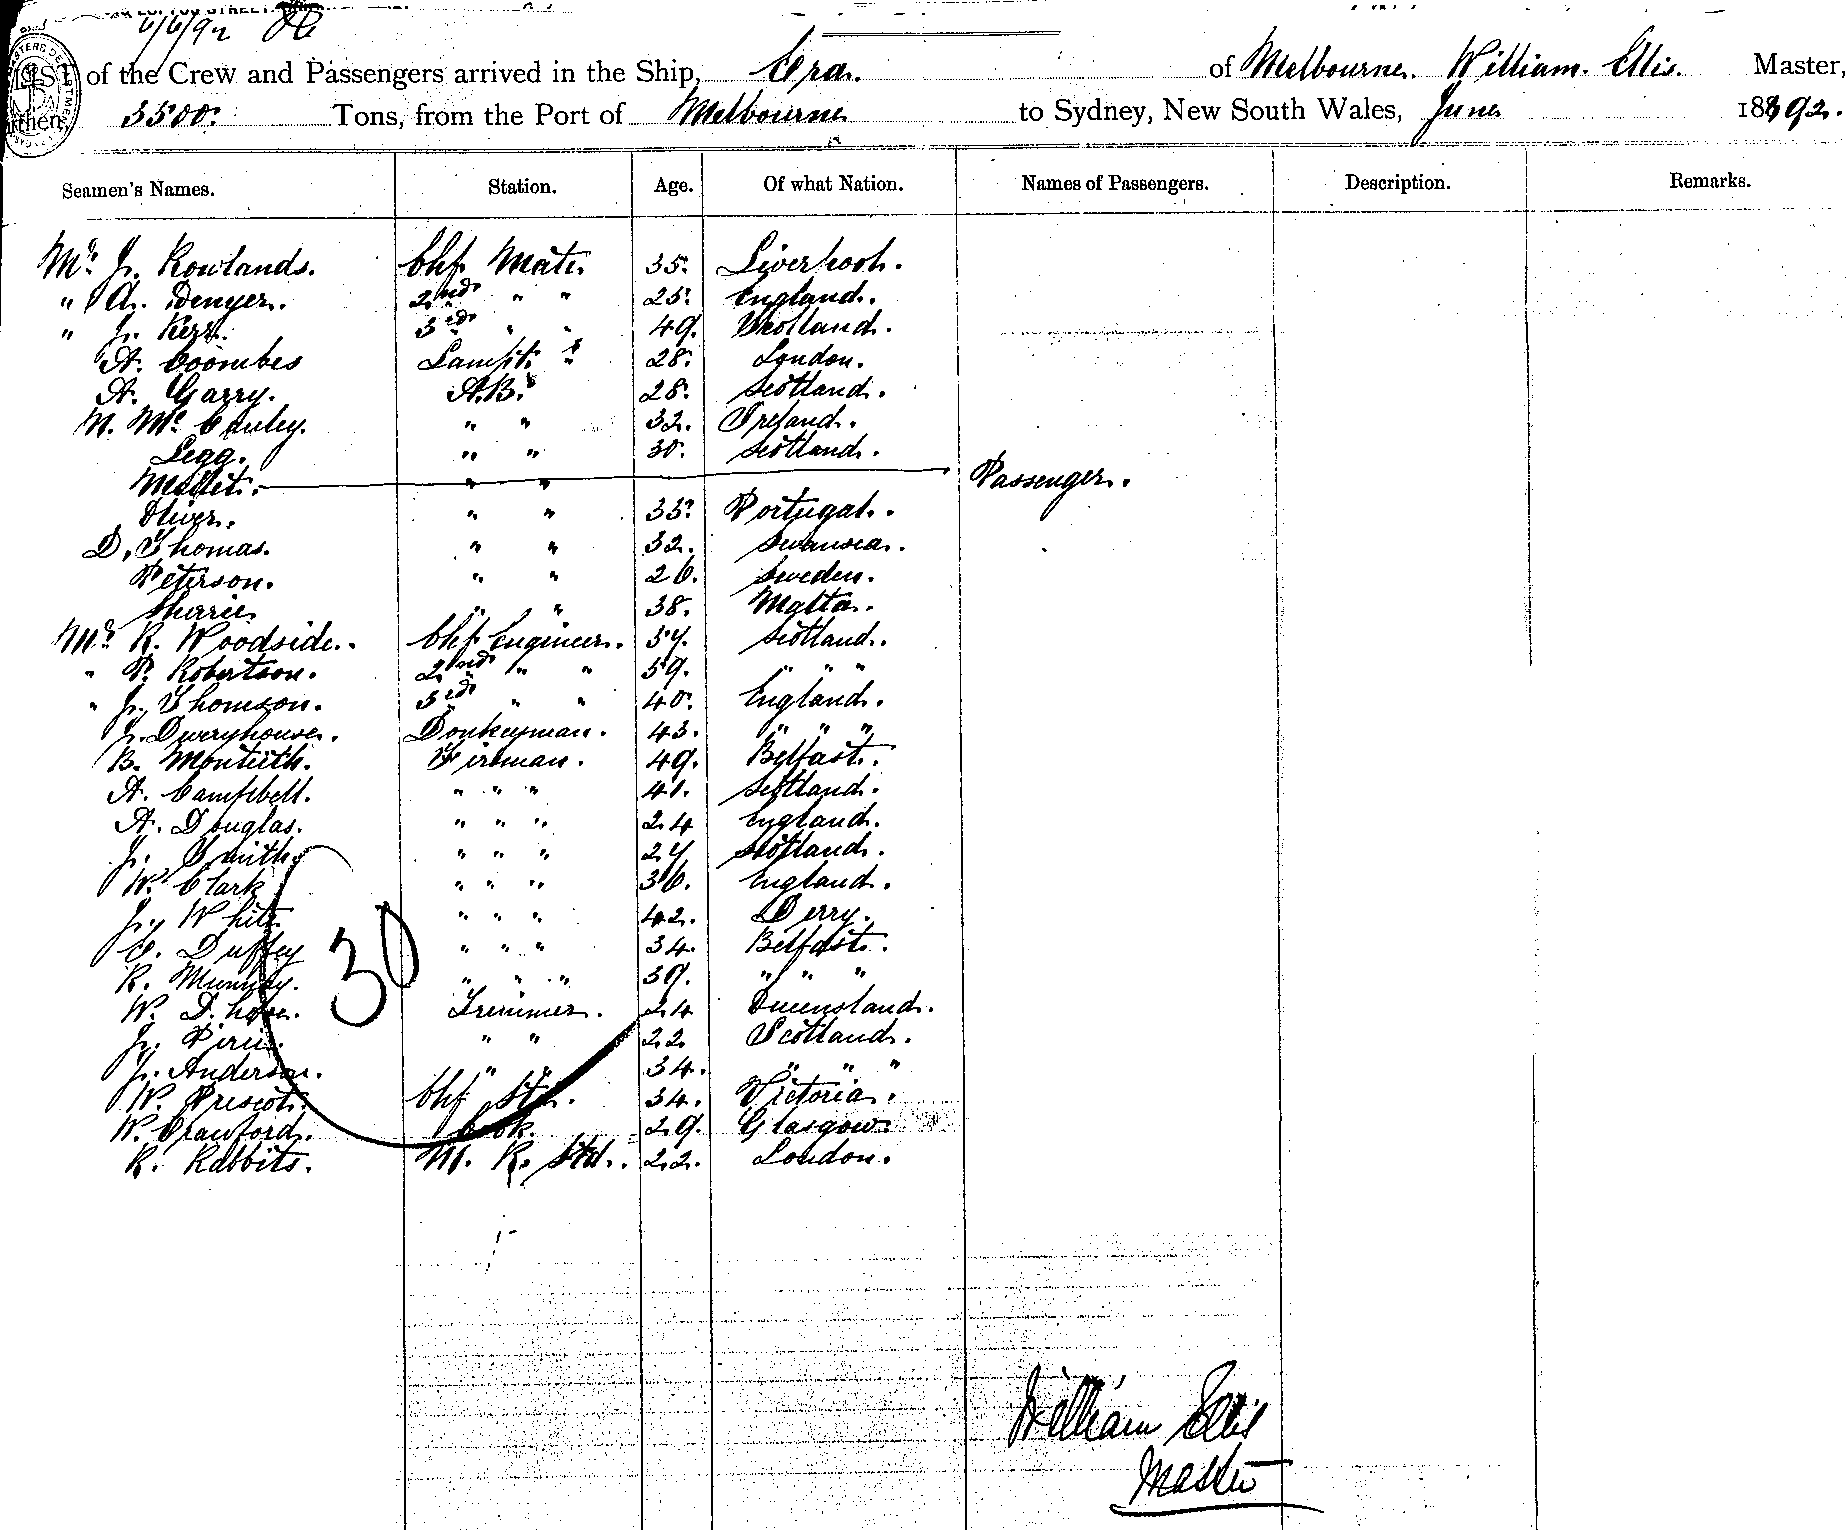 6/6/92
LIST of the Crew and Passengers arrived in the Ship, Era. of Melbourne. William. Ellis. Master,
3500. Tons, from the Port of Melbourne to Sydney, New South Wales, June 1892.
Seamen's Names. Station. Age. Of what Nation. Names of Passengers. Description. Remarks.
Mr. J. Rowlands. Chf. Mate. 35. Liverpool.
" A. Denyer. 2nd " " 25. England.
" J. Kerr. 3rd " " 49. Scotland.
A. Coombes Lampt. " 28. London.
A. Garry. A.B. 28. Scotland.
N. Mc. Cauley. " " 32. Ireland.
Legg. " " 30. Scotland.
Mallit. " " Passenger.
Oliver. " " 35. Portugal.
D. Thomas. " " 32. Swansea.
Peterson. " " 26. Sweden.
" " 38. Malta.
Mr. R. Woodside. Chf. Engineer. 57. Scotland.
" P. Robertson. 2nd " " 59. " " "
" J. Thomson. 3rd " " 40. England.
J. Dweryhouse. Donkeyman. 43. " " "
B. Monteith. Fireman. 49. Belfast.
A. Campbell. " " " 41. Scotland.
A. Douglas. " " " 24 England.
J. Smith. " " " 27 Scotland.
W. Clark " " " 36. England.
J. White " " " 42. Derry.
C. Duffey " " " 34. Belfast.
R. Murray. " " " 39. " " "
W. D. Trimmer. 24 Queensland.
J. Pirie. " " 22 Scotland.
J. Anderson. " " 34. " " "
W. Prescot. Chf. Std. 34. Victoria.
W. Crawford. Cook. 29. Glasgow.
R. Rabbits. M. R. Std. 22. London.
30
William Ellis
Master